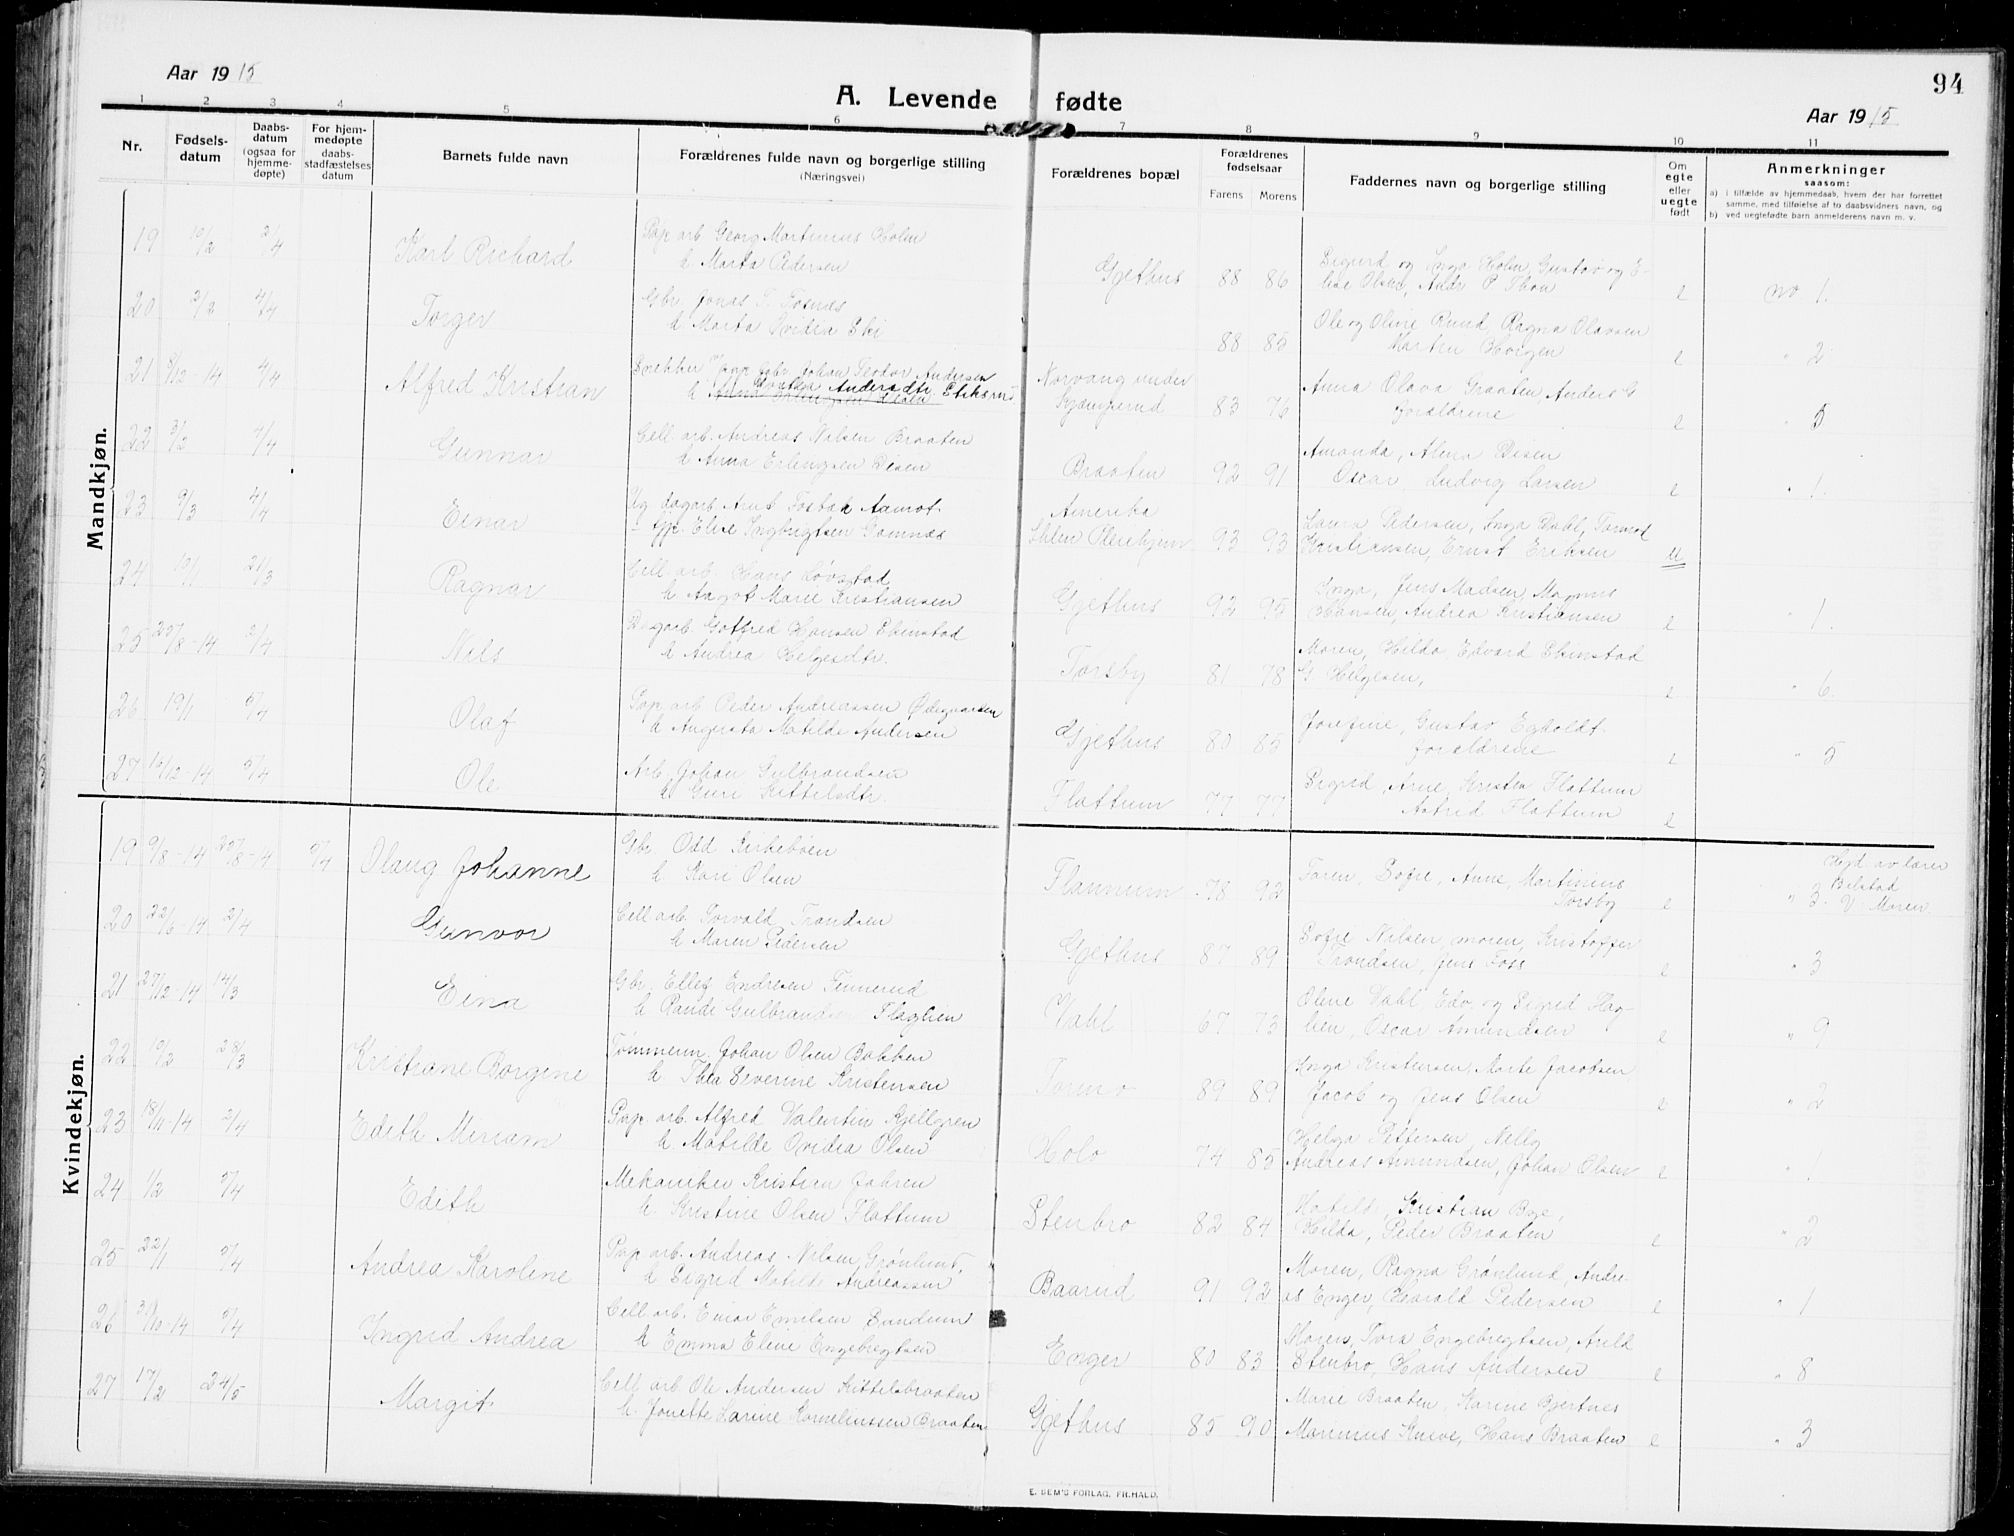 94
Aar 1915
A. Levende fødte
Aar 1915
1 2 3 4 5 6 7 8 9 10 11
Nr.
Fødsels-
datum
Daabs-
datum
(ogsaa for
hjemme-
døpte)
For hjem-
medøpte
daabs-
stadfæstelses
datum
Barnets fulde navn
Forældrenes fulde navn og borgerlige stilling
(Næringsvei)
Forældrenes bopæl
Forældrenes
fødselsaar
Farens Morens
Faddernes navn og borgerlige stilling
Om
egte
eller
uegte
født
Anmerkninger
saasom:
a) i tilfælde av hjemmedaab, hvem der har forrettet
samme, med tilføielse av to daabsvidners navn, og
b) ved uegtefødte barn anmelderens navn m. v.
Mandkjøn.
19 10/2 2/4 Karl Richard
Pap. arb. Georg Martinius Holm
h Marta Pedersen
Gjethus 88 86
Sigurd og Inga Holm, Gustav og E-
line Olsen, Andr P Thon
e no 1.
20 2/2 4/4 Torger
Gbr. Jonas T. Fosnæs
h Marta Ovidia Ski
88 85
Ole og Olive Rund, Ragna Olavsen
Martin Horgen
e " 2
21 8/12-14 4/4 Alfred Kristian
Snekker Johan Teodor Andersen
Andersdtr. Stiksrud
Norvang under
Kjæmperud 83 76
Anna Olava Graaten, Anders G
Forældrene
e " 5
22 3/2 4/4 Gunnar
Cell. arb. Andreas Nilsen Braaten
h Anna Erlingsen Disen
Braaten 92 91
Amanda, Alma Disen
Oscar, Ludvig Larsen
e " 1.
23 9/3 4/4 Einar
Ug. dagarb. Arnt Aamot
tjp. Elise Ingbrigtsen Gamnæs
Amerika
93 93
Laura Pedersen, Inga Dahl,
Kristiansen, Ernst Eriksen
u
24 10/1 21/3 Ragnar
Cell. arb. Hans Løvstad
h Aagot Marie Kristiansen
Gjethus 92 95
Inga, Jens Madsen, Magnus
Hansen, Andrea Kristiansen
e " 1.
25 29/8-14 2/4 Nils
Dagarb. Gotfred Hansen Skinstad
h Andrea Helgesdtr.
Torsby 81 78
Moren, Hilda, Edvard Skinstad
G Helgesen,
e " 6.
26 19/1 5/4 Olaf
Pap. arb. Peder Andreassen Ødegaarden
h Augusta Matilde Andersen
Gjethus 80 85
Josefine, Gustav Egholdt
forældrene
e " 5
27 10/12-14 5/4 Ole
Arb. Johan Gulbrandsen
h Guri Kittelsdtr.
Flattum 77 77
Sigrid, Arne, Kristen Flattum
Astrid Flattum
e
Kvindekjøn.
19 9/8-14 29/8-14 5/4 Olaug Johanne
Gbr. Odd Kirkebøen
h Kari Olsen
Flannum 78 92
Faren, Sofie, Anne, Martinius
Torsby
e " 3.
Hjd av lærer
Bilstad
V: Moren
20 22/6-14 2/4 Gunvor
Cell. arb. Torvald Trondsen
h Maren Pedersen
Gjethus 87 89
Sofie Nilsen, moren, Kristoffer
Trondsen, Jens Foss
e " 3
21 27/12-14 14/3 Eina
Gbr. Ellef Endresen Finnerud
h Randi Gulbrandsen Flaglien
Vahl 67 73
Oline Vahl, Edv. og Sigrid Flag-
lien, Oscar Amundsen
e " 9
22 10/2 28/3 Kristiane Borgine
Tømmerm. Johan Olsen Bakken
h Thea Severine Kristensen
89 89
Inga Kristensen, Marte Jacobsen
Jacob og Jens Olsen
e " 2
23 18/11-14 2/4 Edith Miriam
Pap. arb. Alfred Valentin Kjellgren
h Matilde Ovidia Olsen
Holo 74 85
Helga Pettersen, Nelly
Andreas Amundsen, Johan Olsen
e " 1.
24 1/2 5/4 Edith
Mekaniker Kristian Jahren
h Kristine Olsen Flattum
Stenbro 82 84
Matild, Kristian Bye,
Hilda, Peder Braaten
e " 2
25 22/11 5/4 Andrea Karoline
Pap. arb. Andreas Nilsen Grønlund,
h Sigrid Matilde Andreassen
Baarud 91 92
Moren, Ragna Grønlund, Andre-
as Enger, Harald Pedersen
e " 1
26 31/10-14 5/4 Ingrid Andrea
Cell. arb. Einar Emilsen Sandum
h Emma Eline Engebregtsen
Enger 80 83
Moren, Tora Engebregtsen, Arild
Stenbro, Hans Andersen
e " 8
27 17/2 24/5 Margit
Cell. arb Ole Andersen Kittelsbraaten
h. Jonette Larine Korneliussen Braaten
Gjethus 85 90
Marie Braaten, Karine Bjertnes
Marinius Knive, Hans Braaten
e " 3
E. SEM'S FORLAG, FR.HALD.